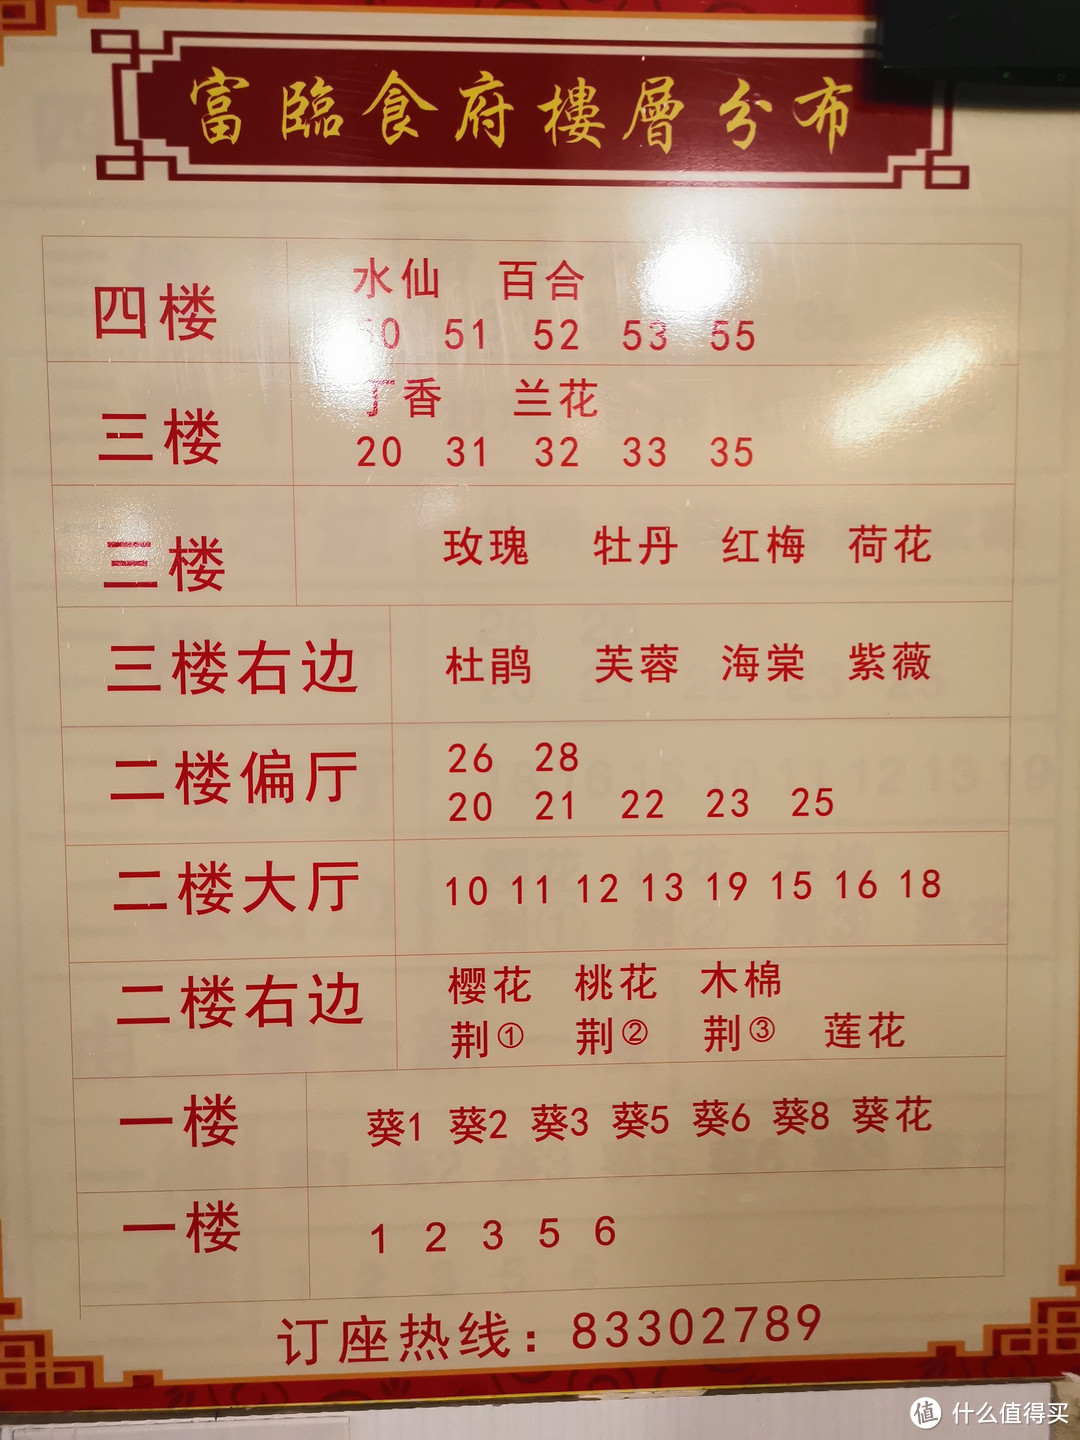 富臨食府樓層分布
四楼 水仙 百合
50 51 52 53 55
三楼 丁香 兰花
20 31 32 33 35
三楼 玫瑰 牡丹 红梅 荷花
三楼右边 杜鹃 芙蓉 海棠 紫薇
二楼偏厅 26 28
20 21 22 23 25
二楼大厅 10 11 12 13 19 15 16 18
二楼右边 樱花 桃花 木棉
荆① 荆② 荆③ 莲花
一楼 葵1 葵2 葵3 葵5 葵6 葵8 葵花
一楼 1 2 3 5 6
订座热线：83302789
值 什么值得买